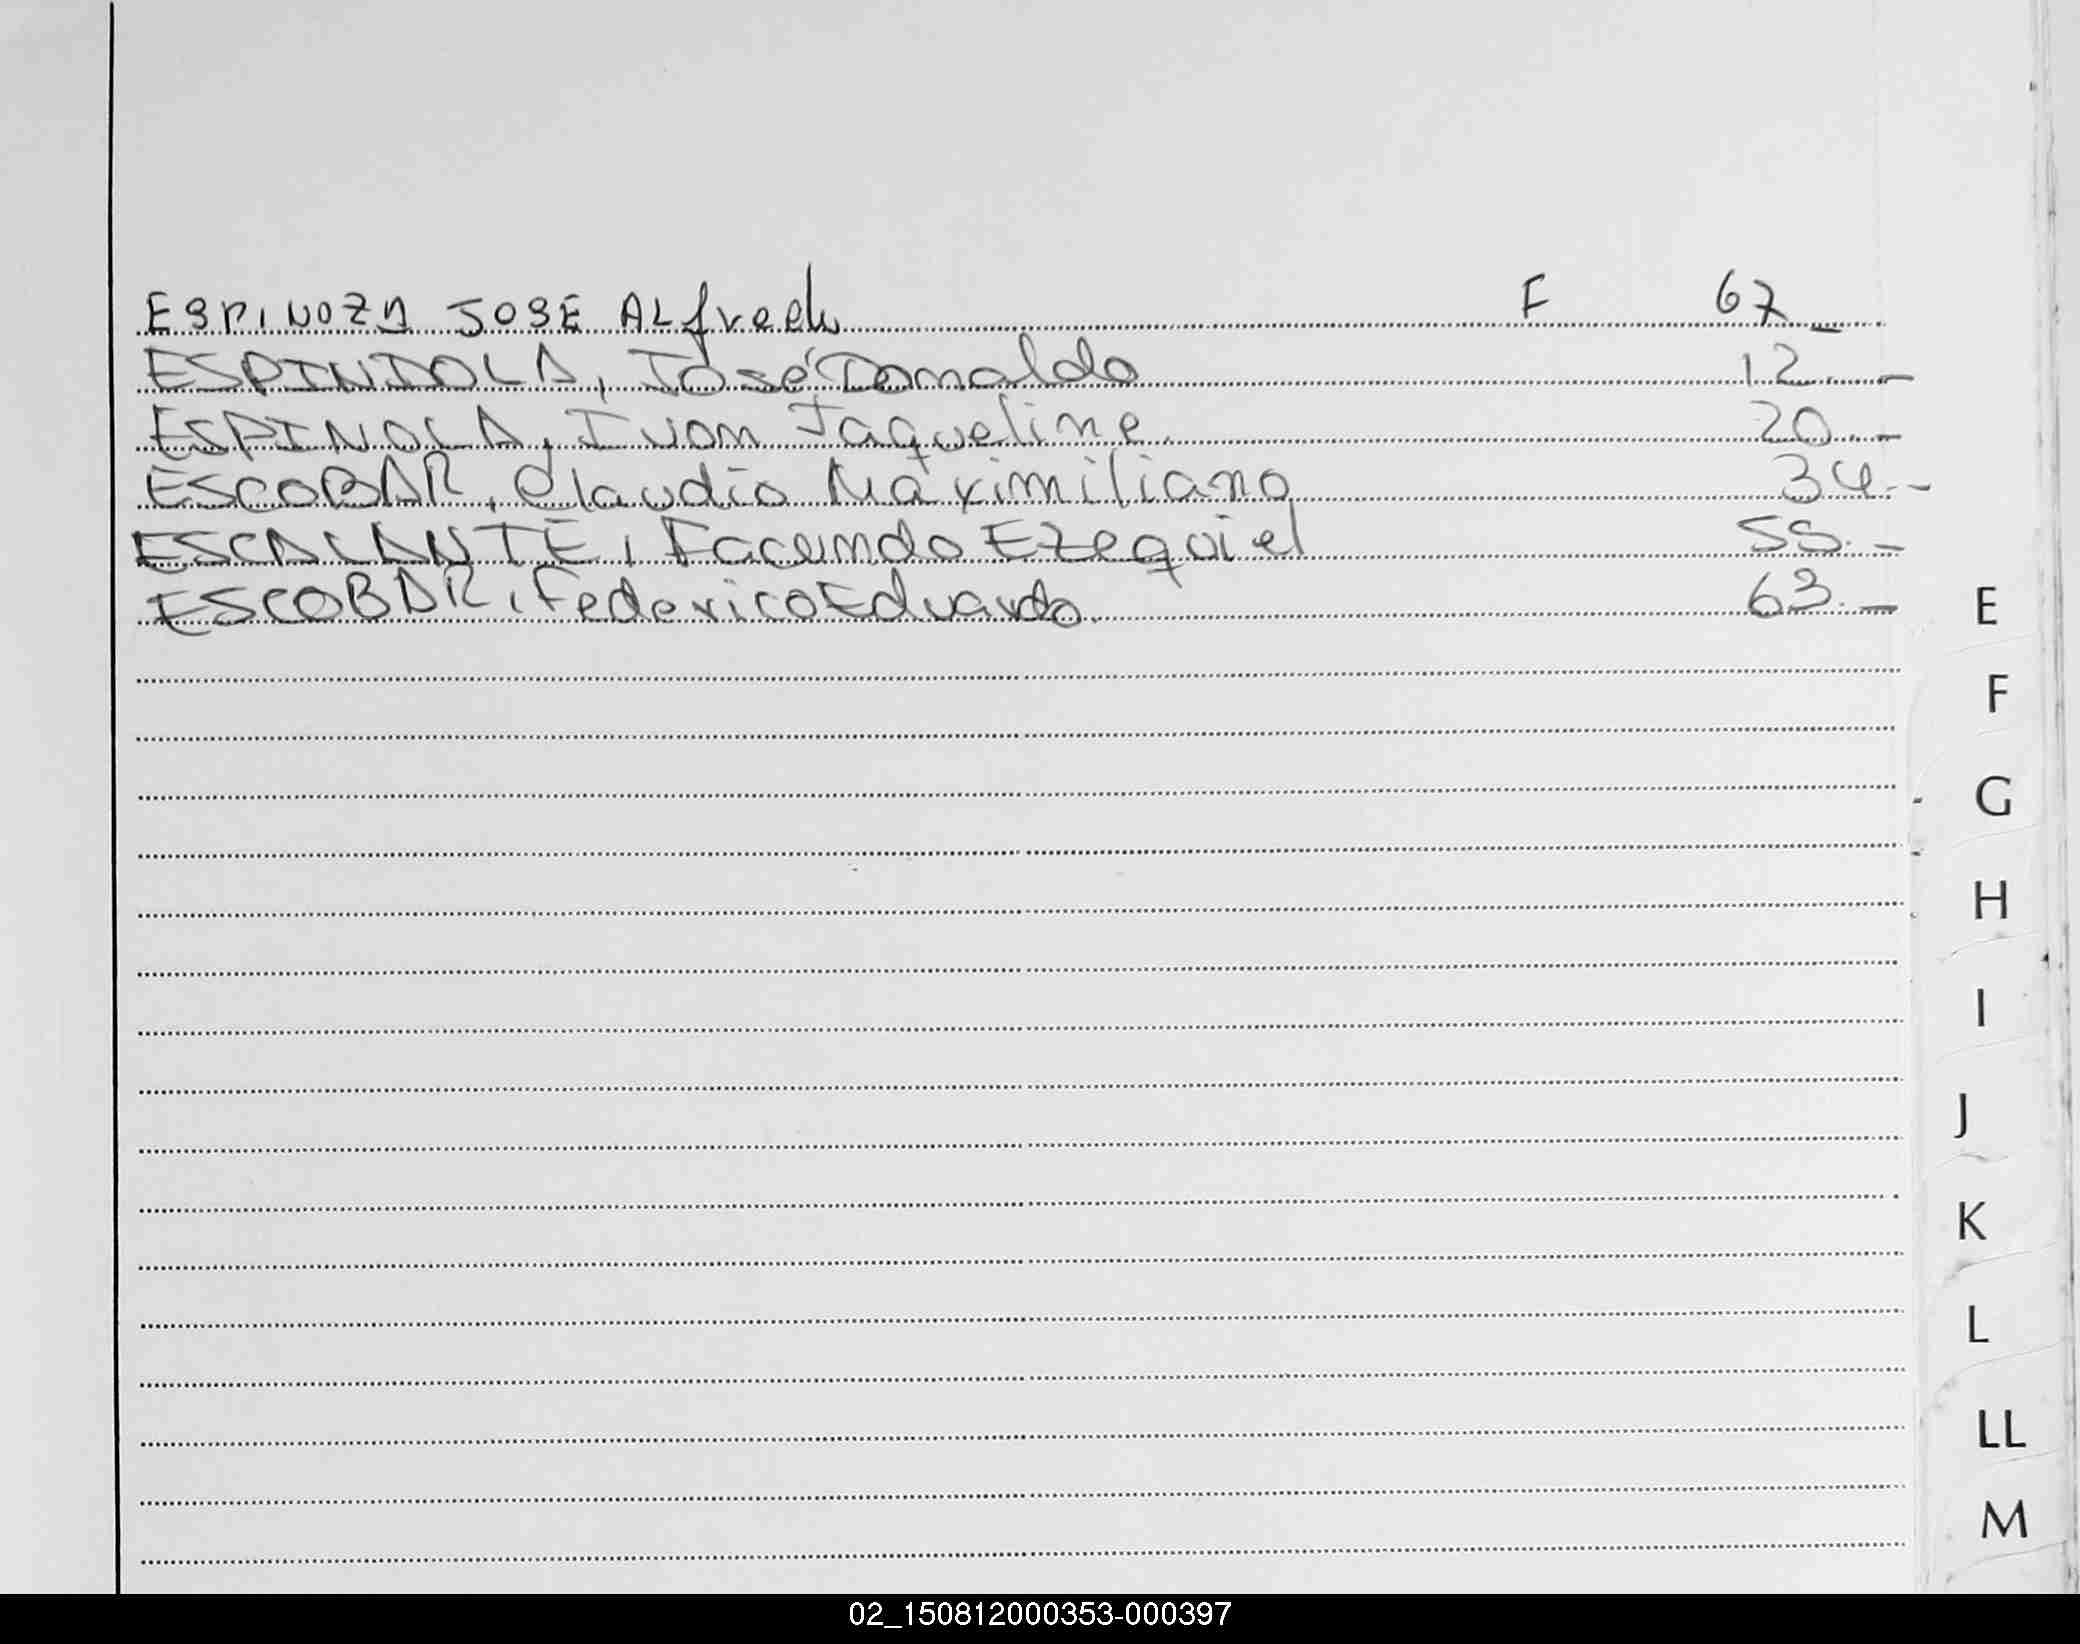 ESPINOZA JOSE ALfredo F 67_
ESPINDOLA, José Donaldo 12.-
ESPINOLA, Ivon Jaqueline. 20.-
ESCOBAR, Claudio Maximiliano 34.-
ESCALANTE, Facundo Ezequiel 55.-
ESCOBAR, Federico Eduardo. 63.-
E
F
G
H
I
J
K
L
LL
M
02_150812000353-000397